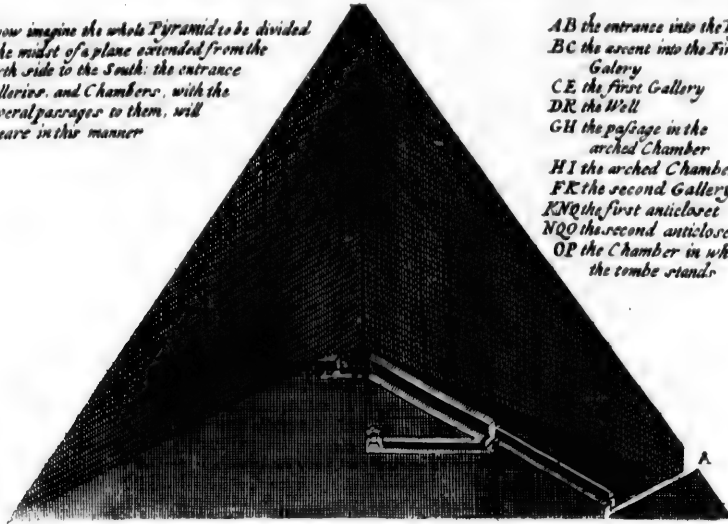 ow imagine the whole Pyramid to be divided
he midst of a plane extended from the
rth side to the South: the entrance
lleries, and Chambers, with the
veral passages to them, will
eare in this manner
AB the entrance into the
BC the ascent into the Fir
Galery
CE the first Gallery
DR the Well
GH the passage in the
arched Chamber
HI the arched Chambe
FK the second Gallery
KNQ the first anticloset
NQO the second anticlose
OP the Chamber in wh
the tombe stands
A